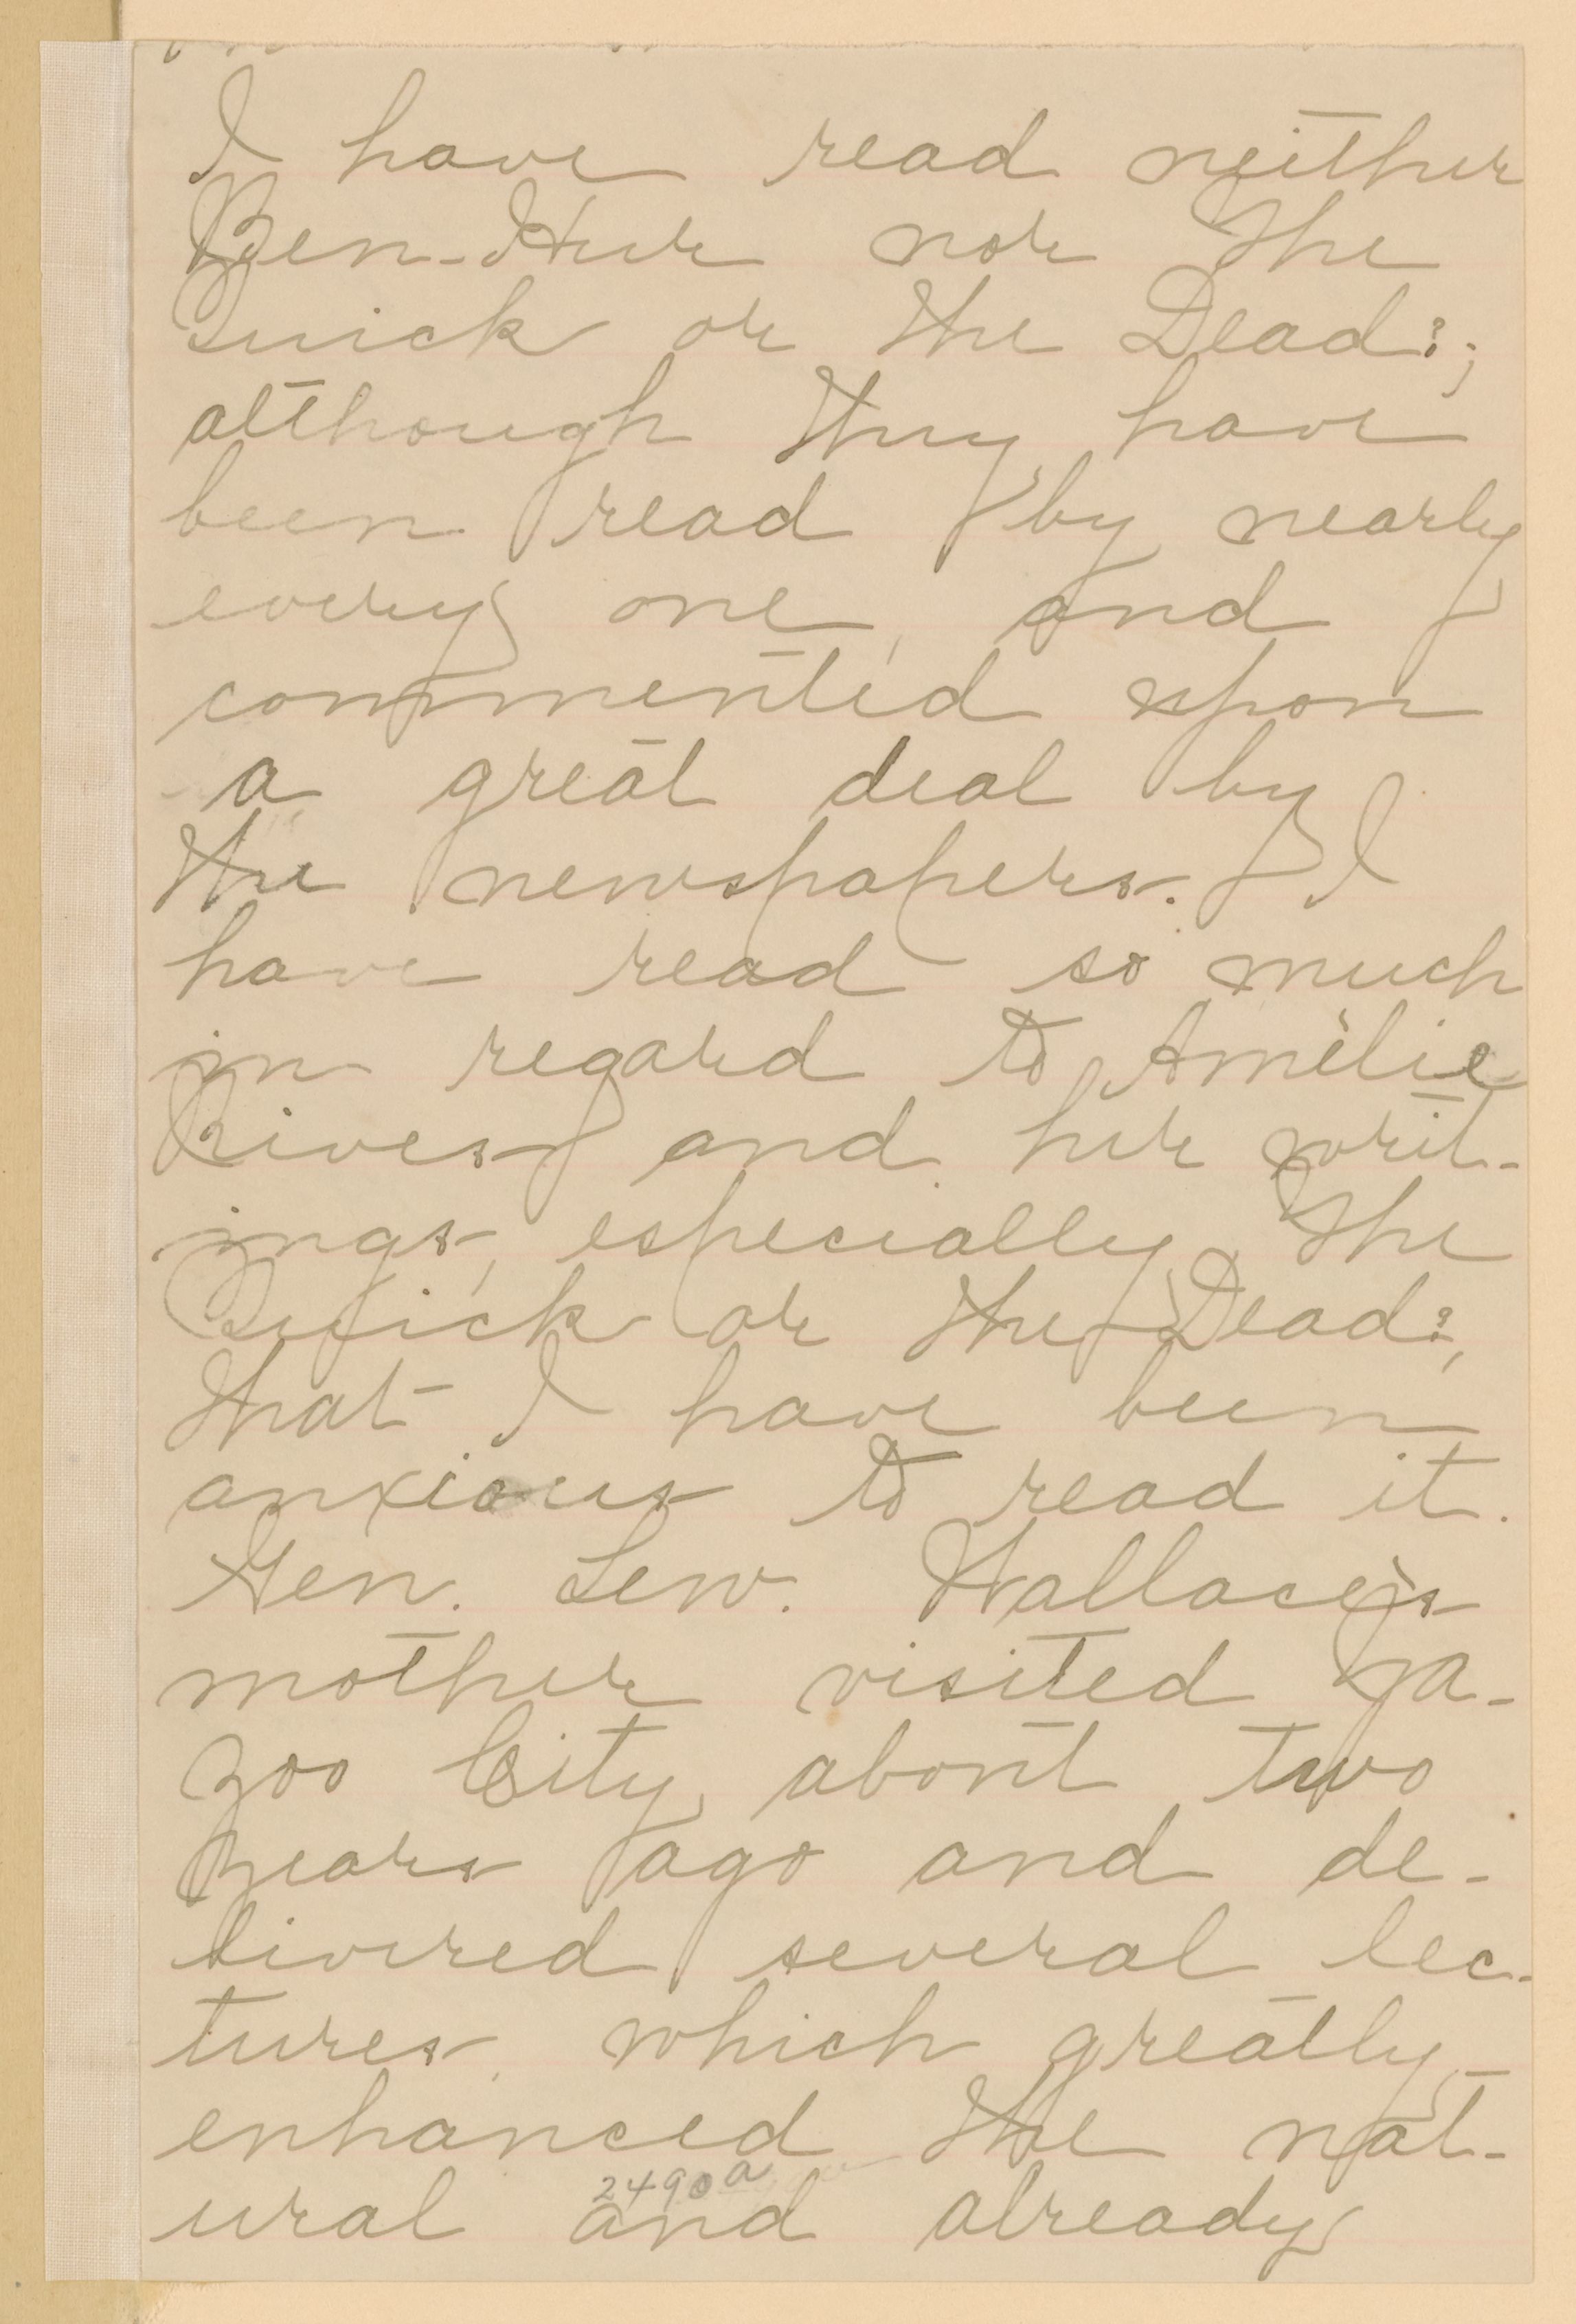 I have read neither
Ben-Hur nor The
Quick or the Dead?;
although they have
been read by nearly
every one, and
commented upon
a great deal by
the newspapers. I
have read so much
in regard to Amèlie
Rives and her writ-
ings, especially The
Quick or the Dead?,
that I have been
anxious to read it.
Gen. Lew. Wallace's
mother visited Ya-
zoo City about two
years ago and de-
livered several lec-
tures, which greatly
enhanced the nat-
2490a
ural and already